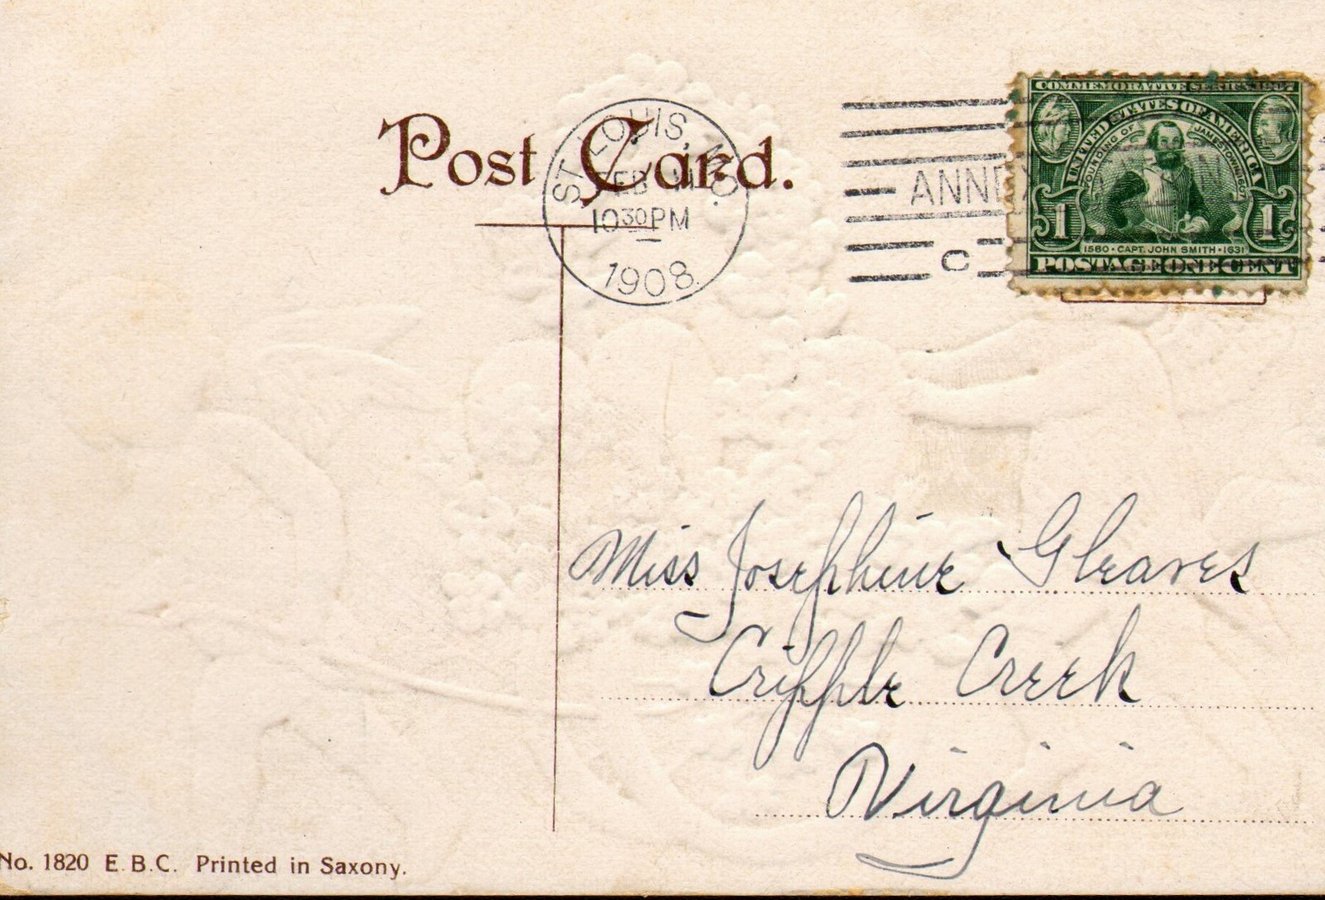 Post Card.
ST. LOUIS, MO.
FEB
10 30 PM
1908
ANNEX
C
COMMEMORATIVE SERIES 1907
UNITED STATES OF AMERICA
FOUNDING OF JAMESTOWN 1607
1 1
1580 • CAPT. JOHN SMITH • 1631
POSTAGE ONE CENT
Miss Josephine Gleaves
Cripple Creek
Virginia
No. 1820 E.B.C. Printed in Saxony.